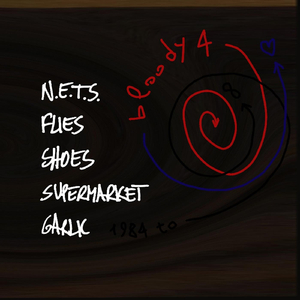 bloody 4
8
N.E.T.S.
FLIES
SHOES
SUPERMARKET
GARLIC
1984 to